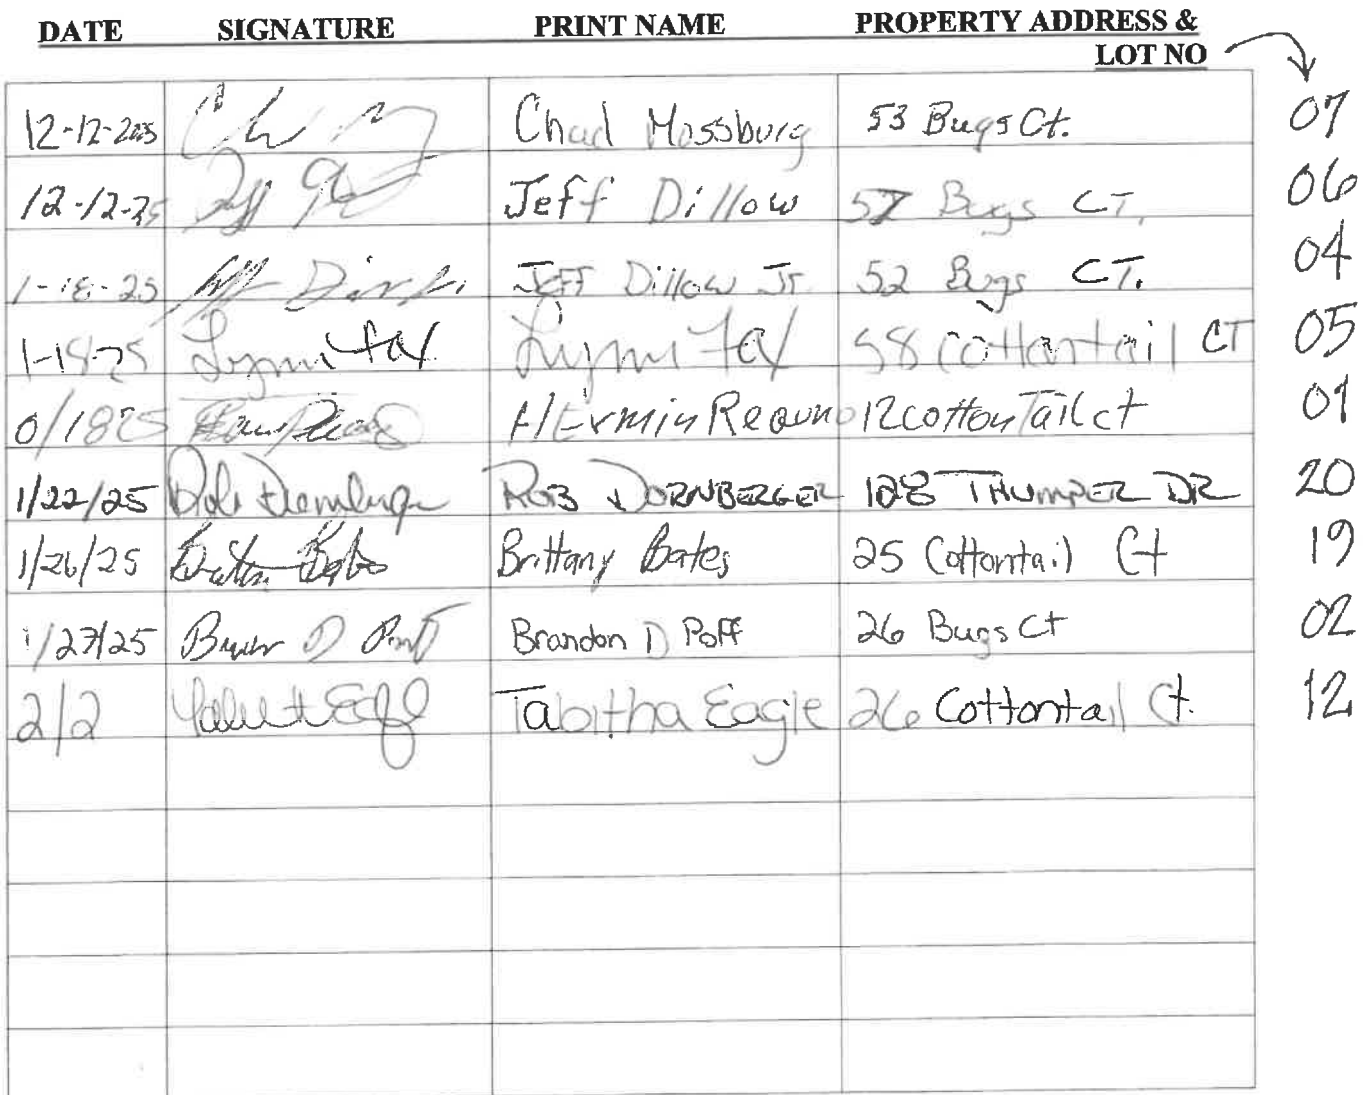 DATE SIGNATURE PRINT NAME PROPERTY ADDRESS &
LOT NO
12-12-2025 Chad Mossburg 53 Bugs Ct. 07
12-12-25 Jeff Dillow 57 Bugs CT. 06
1-18-25 JEFF Dillow Jr 52 Bugs CT. 04
1-18-25 Lynn Fax Lynn Fax 58 Cottontail CT 05
0/1825 12 cotton Tail ct 01
1/22/25 Rob Dornberger ROB DORNBERGER 128 THUMPER DR 20
1/26/25 Brittany Bates 25 Cottontail Ct 19
1/27/25 Brandon D Poff 26 Bugs Ct 02
2/2 Tabitha Eagle 26 Cottontail Ct. 12